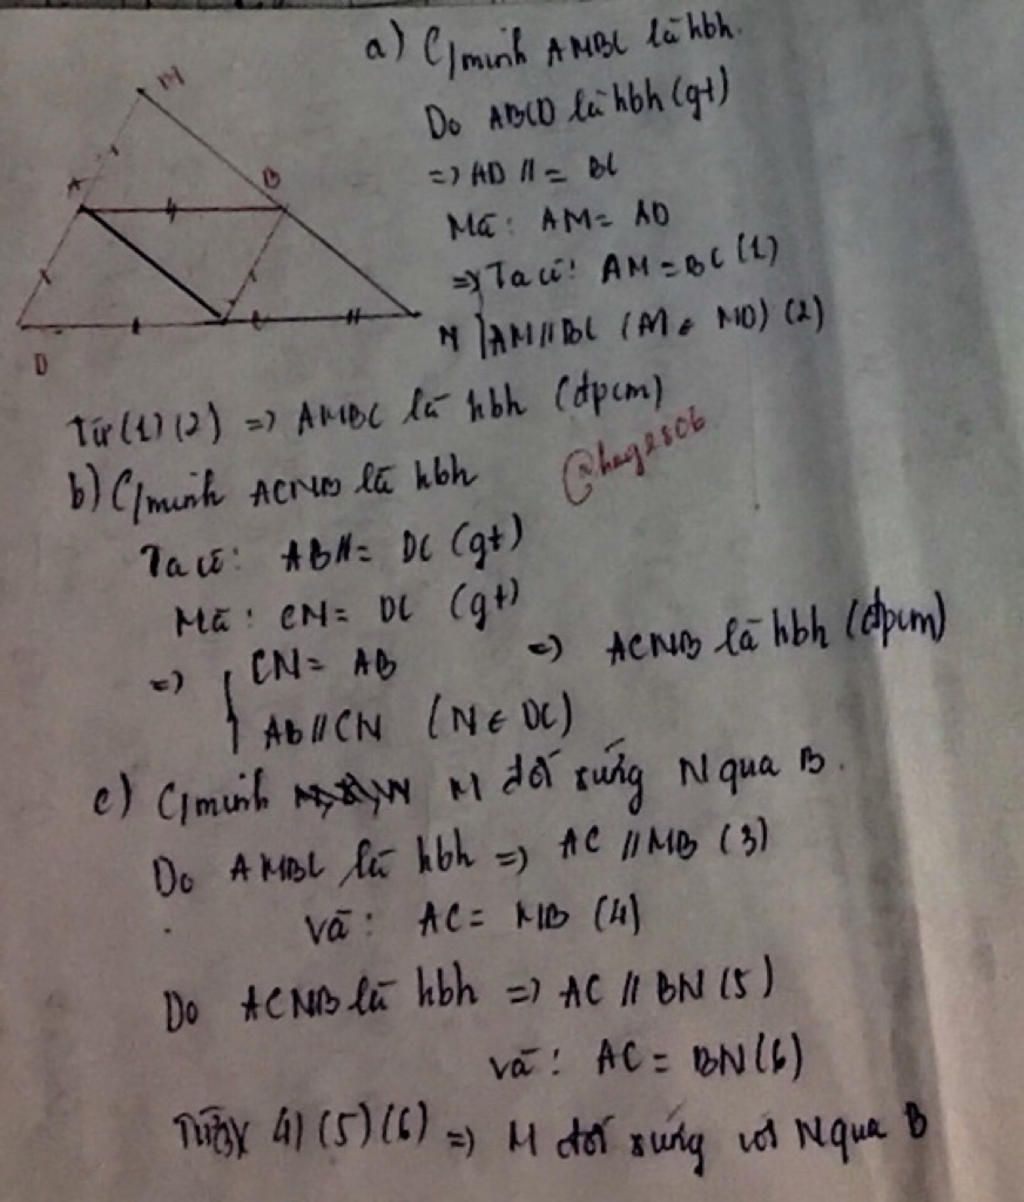 a) C/minh AMBC là hbh.
Do ABCD là hbh (gt)
=> AD // = BC
Mà: AM = AD
=> Ta có: AM = BC (1)
AM // BC (M ∈ MD) (2)
M
A
B
D
C
N
Từ (1) (2) => AMBC là hbh (đpcm)
@hag2806
b) C/minh ACNB là hbh
Ta có: AB // = DC (gt)
Mà: CN = DC (gt)
=> { CN = AB => ACNB là hbh (đpcm)
AB // CN (N ∈ DC)
c) C/minh M đối xứng N qua B.
Do AMBC là hbh => AC // MB (3)
và: AC = MB (4)
Do ACNB là hbh => AC // BN (5)
và: AC = BN (6)
Từ (3) (4) (5) (6) => M đối xứng với N qua B